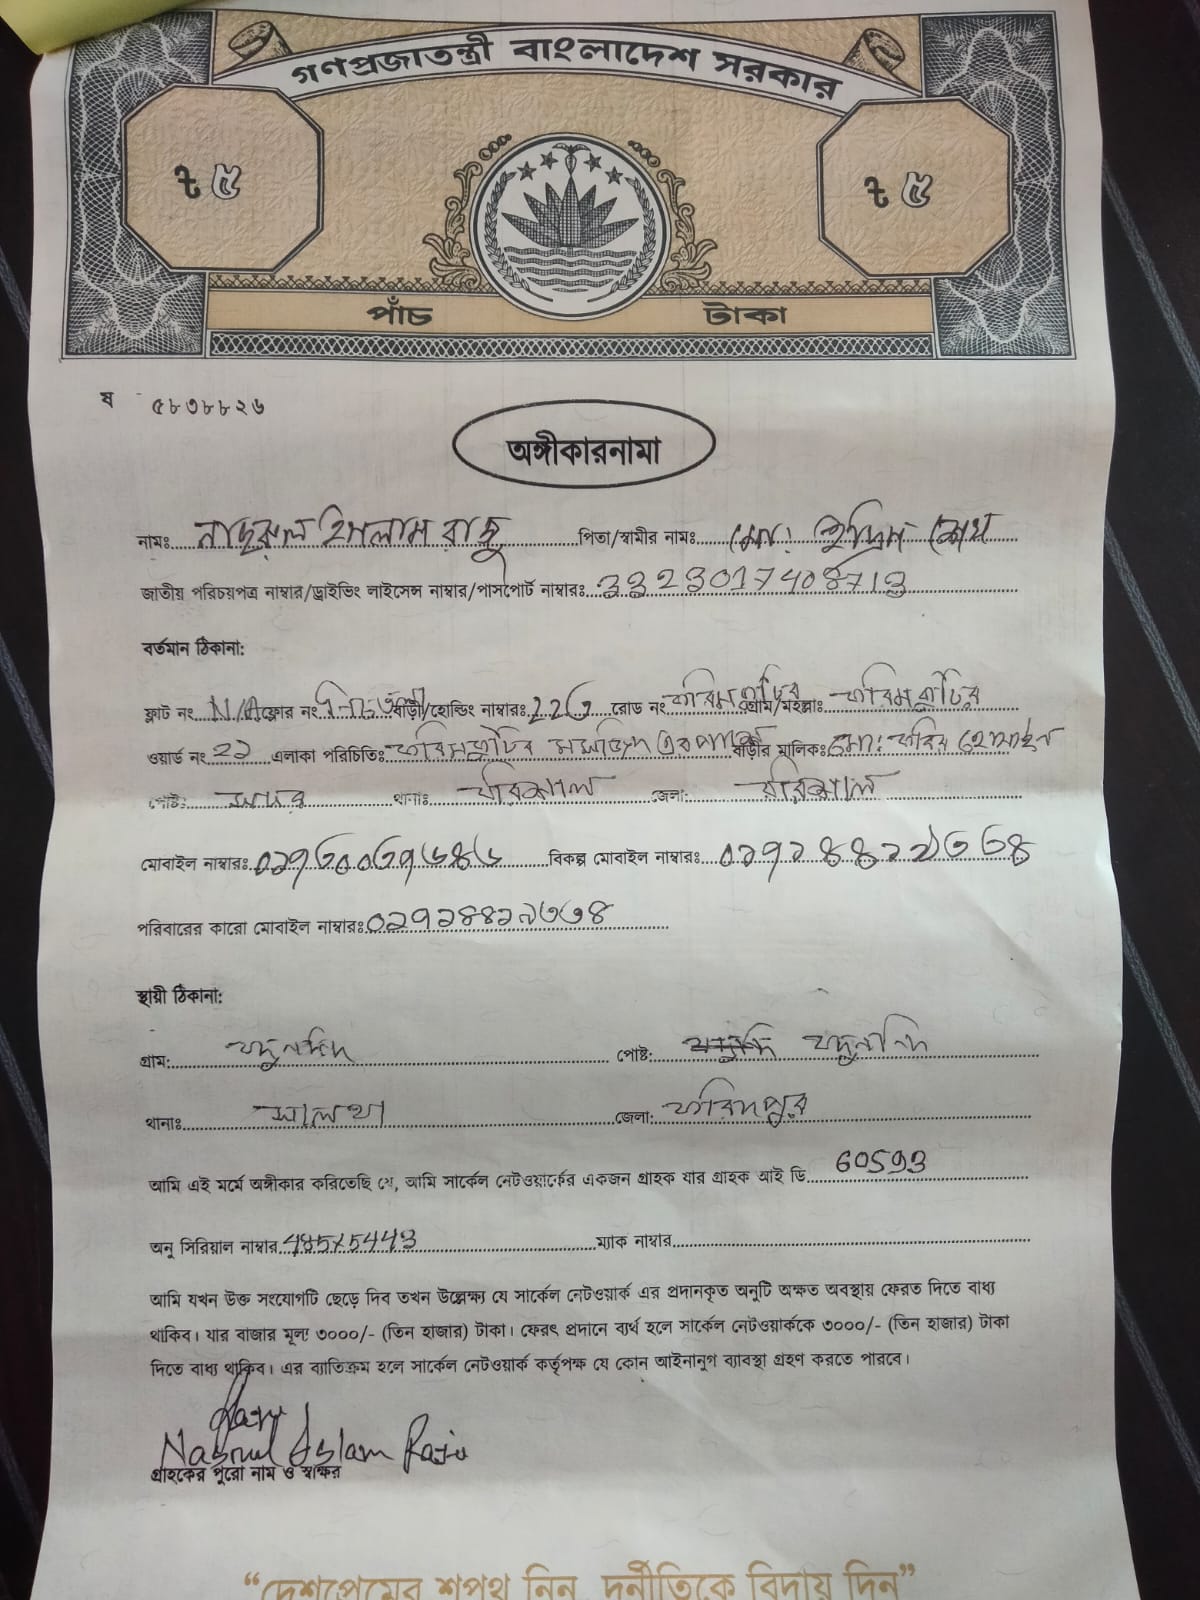 গণপ্রজাতন্ত্রী বাংলাদেশ সরকার
৳ ৫ ৳ ৫
পাঁচ টাকা
ষ ৫৮৩৮৮২৬
অঙ্গীকারনামা
নামঃ নাছরুল ইসলাম রাজু পিতা/স্বামীর নামঃ মোঃ ইদ্রিস শেখ
জাতীয় পরিচয়পত্র নাম্বার/ড্রাইভিং লাইসেন্স নাম্বার/পাসপোর্ট নাম্বারঃ
বর্তমান ঠিকানা:
ফ্লাট নং N/A ফ্লোর নং বাড়ী/হোল্ডিং নাম্বারঃ রোড নং গ্রাম/মহল্লাঃ
ওয়ার্ড নং ২১ এলাকা পরিচিতিঃ বাড়ীর মালিকঃ মোঃ
পোষ্ট: সদর থানাঃ বরিশাল জেলা: বরিশাল
মোবাইল নাম্বারঃ বিকল্প মোবাইল নাম্বারঃ
পরিবারের কারো মোবাইল নাম্বারঃ
স্থায়ী ঠিকানা:
গ্রাম: যদুনন্দি পোষ্ট: যদুনন্দি
থানাঃ সালথা জেলা: ফরিদপুর
আমি এই মর্মে অঙ্গীকার করিতেছি যে, আমি সার্কেল নেটওয়ার্কের একজন গ্রাহক যার গ্রাহক আই ডি 60593
অনু সিরিয়াল নাম্বার ম্যাক নাম্বার
আমি যখন উক্ত সংযোগটি ছেড়ে দিব তখন উল্লেক্ষ্য যে সার্কেল নেটওয়ার্ক এর প্রদানকৃত অনুটি অক্ষত অবস্থায় ফেরত দিতে বাধ্য
থাকিব। যার বাজার মূল্য ৩০০০/- (তিন হাজার) টাকা। ফেরৎ প্রদানে ব্যর্থ হলে সার্কেল নেটওয়ার্ককে ৩০০০/- (তিন হাজার) টাকা
দিতে বাধ্য থাকিব। এর ব্যাতিক্রম হলে সার্কেল নেটওয়ার্ক কর্তৃপক্ষ যে কোন আইনানুগ ব্যাবস্থা গ্রহণ করতে পারবে।
Nasrul Islam Raju
গ্রাহকের পুরো নাম ও স্বাক্ষর
“দেশপ্রেমের শপথ নিন, দুর্নীতিকে বিদায় দিন”